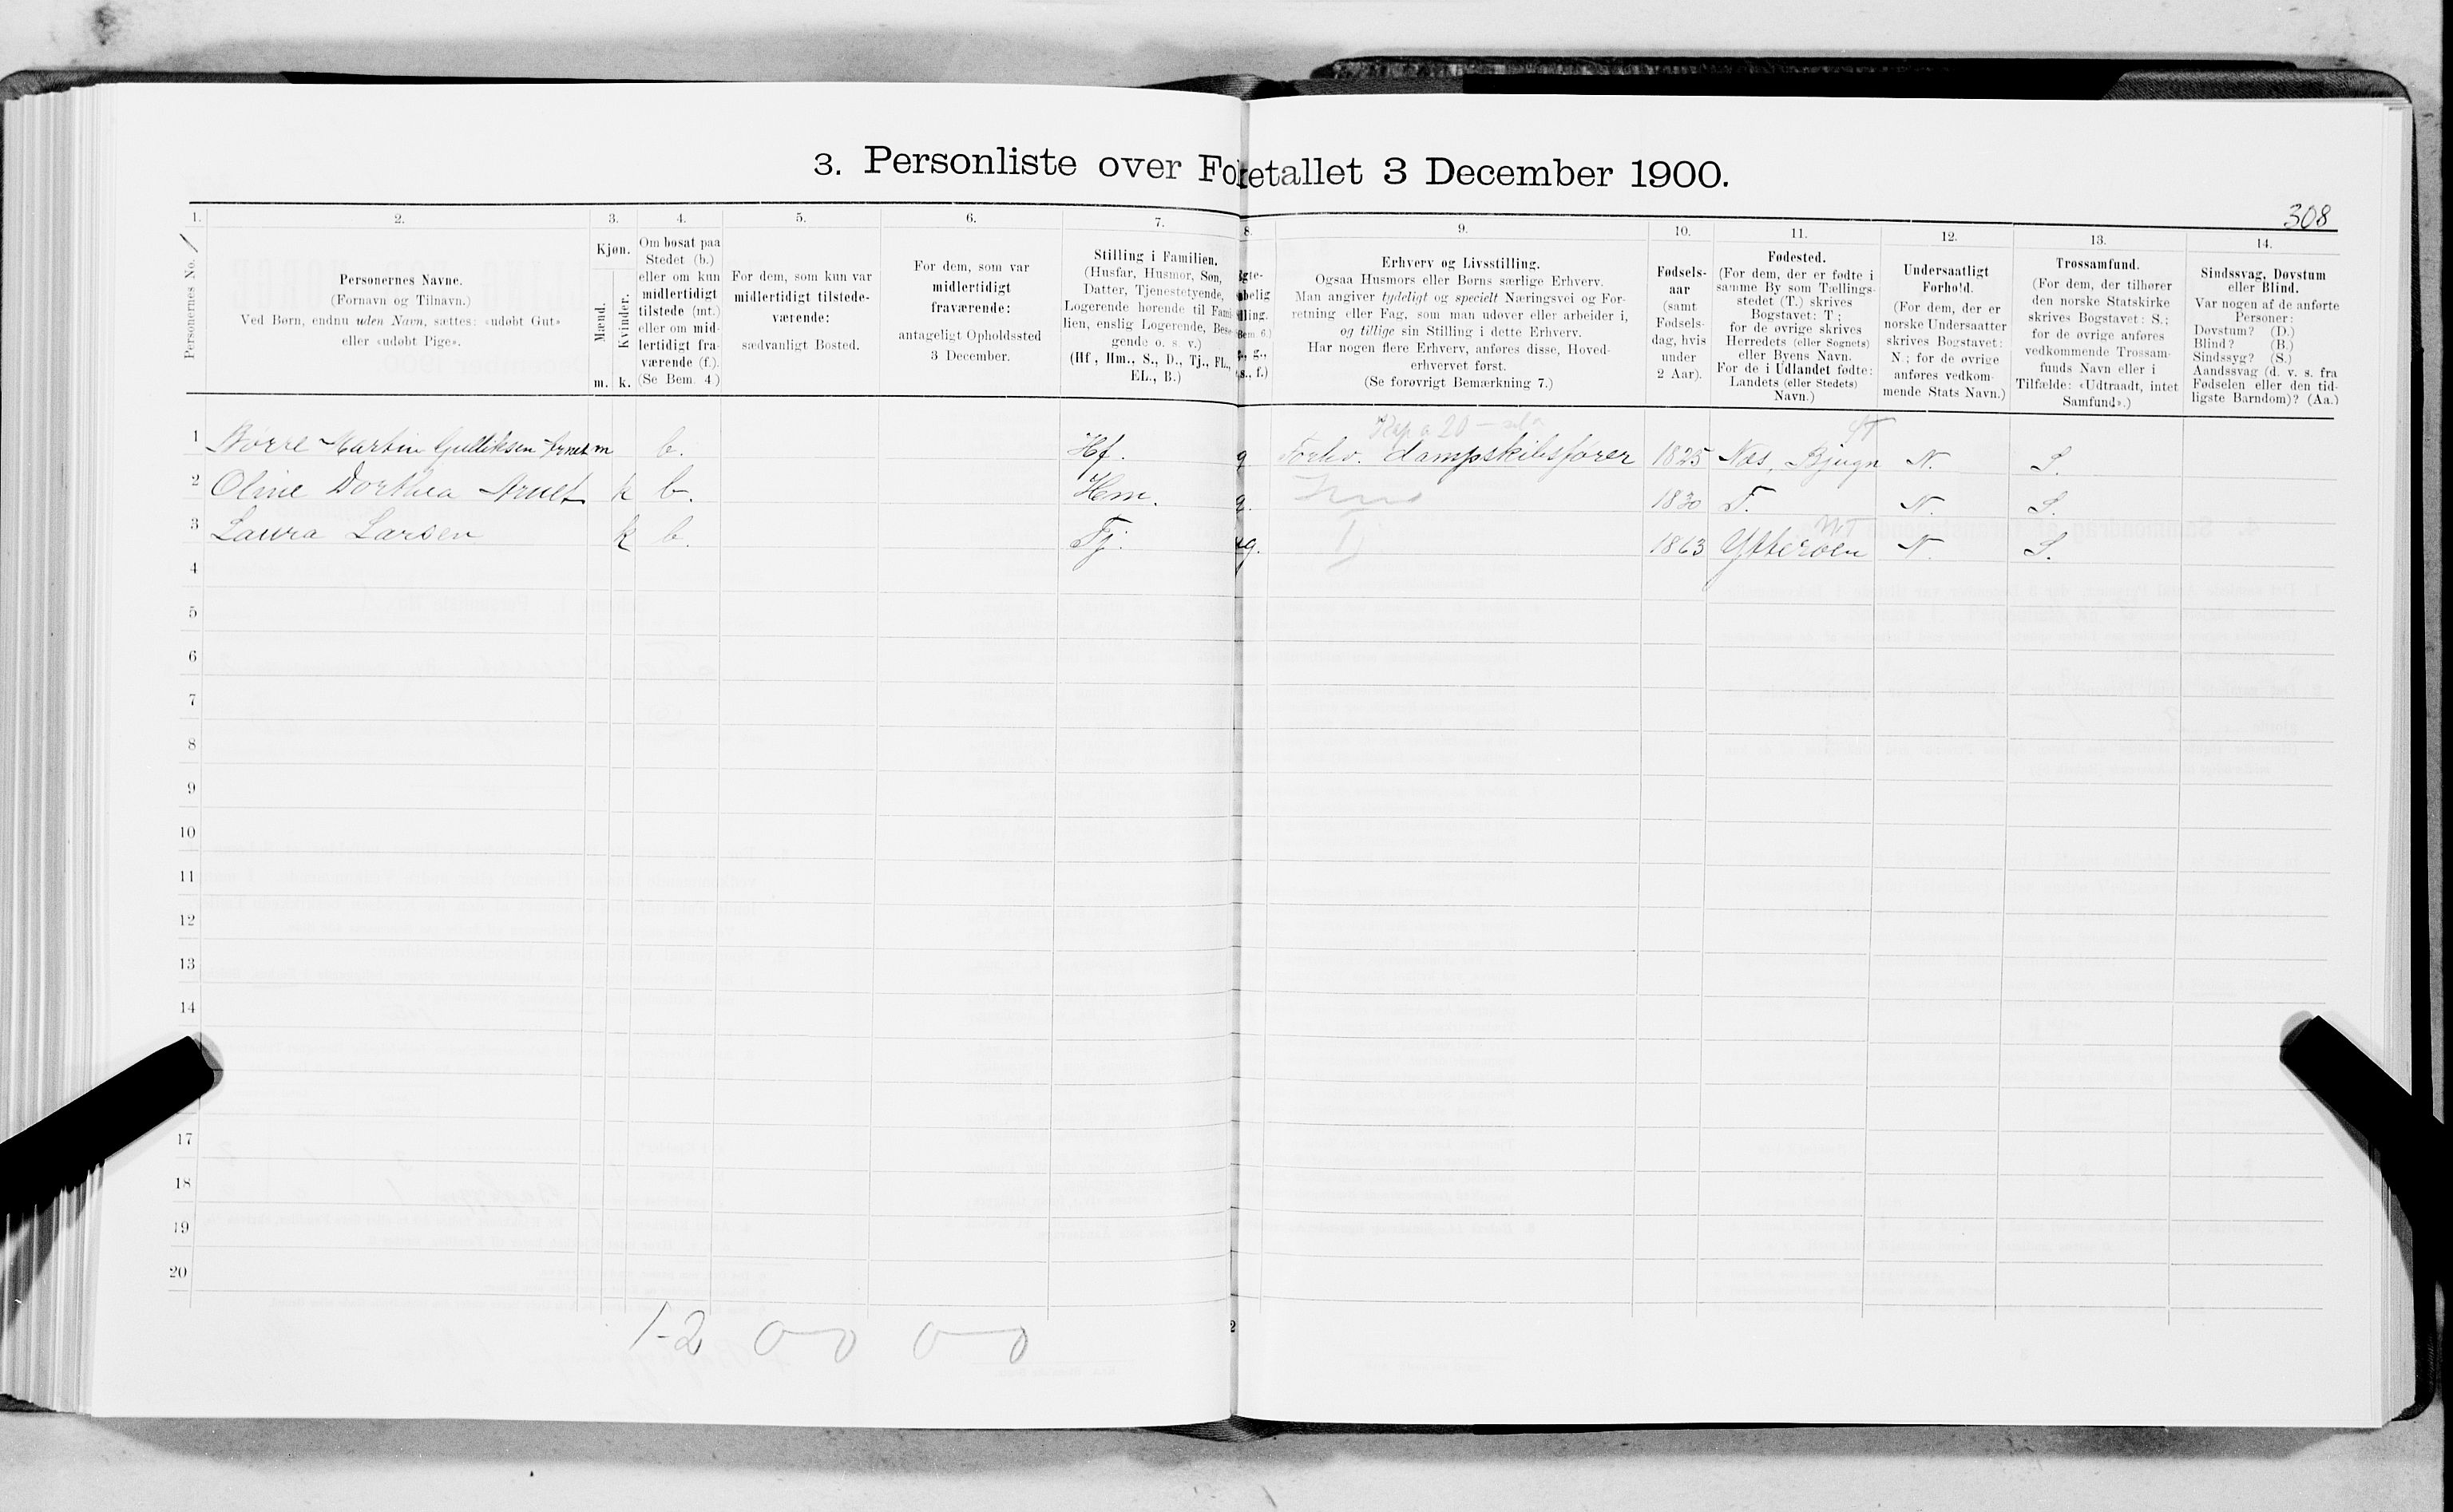 3. Personliste over Folketallet 3 December 1900.
308
1. 2. 3. 4. 5. 6. 7. 8. 9. 10. 11. 12. 13. 14.
Personernes No.
Personernes Navne.
(Fornavn og Tilnavn.)
Ved Børn, endnu uden Navn, sættes: «udøbt Gut»
eller «udøbt Pige».
Kjøn.
Mænd.
Kvinder.
m. k.
Om bosat paa
Stedet (b.)
eller om kun
midlertidigt
tilstede (mt.)
eller om mid-
lertidigt fra-
værende (f.).
(Se Bem. 4.)
For dem, som kun var
midlertidigt tilstede-
værende:
sædvanligt Bosted.
For dem, som var
midlertidigt
fraværende:
antageligt Opholdssted
3 December.
Stilling i Familien.
(Husfar, Husmor, Søn,
Datter, Tjenestetyende,
Logerende hørende til Fami-
lien, enslig Logerende, Besø-
gende o. s. v.)
(Hf., Hm., S., D., Tj., FL.,
EL., B.)
gte-
belig
lling.
Bem. 6.)
g.,
s., f.)
Erhverv og Livsstilling.
Ogsaa Husmors eller Børns særlige Erhverv.
Man angiver tydeligt og specielt Næringsvei og For-
retning eller Fag, som man udøver eller arbeider i,
og tillige sin Stilling i dette Erhverv.
Har nogen flere Erhverv, anføres disse, Hoved-
erhvervet først.
(Se forøvrigt Bemærkning 7.)
Fødsels-
aar
(samt
Fødsels-
dag, hvis
under
2 Aar).
Fødested.
(For dem, der er fødte i
samme By som Tællings-
stedet (T.) skrives
Bogstavet: T;
for de øvrige skrives
Herredets (eller Sognets)
eller Byens Navn.
For de i Udlandet fødte:
Landets (eller Stedets)
Navn.)
Undersaatligt
Forhold.
(For dem, der er
norske Undersaatter
skrives Bogstavet:
N; for de øvrige
anføres vedkom-
mende Stats Navn.)
Trossamfund.
(For dem, der tilhører
den norske Statskirke
skrives Bogstavet: S.;
for de øvrige anføres
vedkommende Trossam-
funds Navn eller i
Tilfælde: «Udtraadt, intet
Samfund».)
Sindssvag, Døvstum
eller Blind.
Var nogen af de anførte
Personer:
Døvstum? (D.)
Blind? (B.)
Sindssyg? (S.)
Aandssvag (d. v. s. fra
Fødselen eller den tid-
ligste Barndom)? (Aa.)
1 Børre Martin Gulliksen Arnet m b. Hf. g Forhv. Dampskibsfører 1825 Næs, Bjugn N. S.
2 Oline Dorthea Arnet k b. Hm. g. 1830 T. N. S.
3 Laura Larsen k b. Tj. ug. 1863 Ytterøen N. S.
4
5
6
7
8
9
10
11
12
13
14
17
18
19
20
1-2 0-0 0-0
2